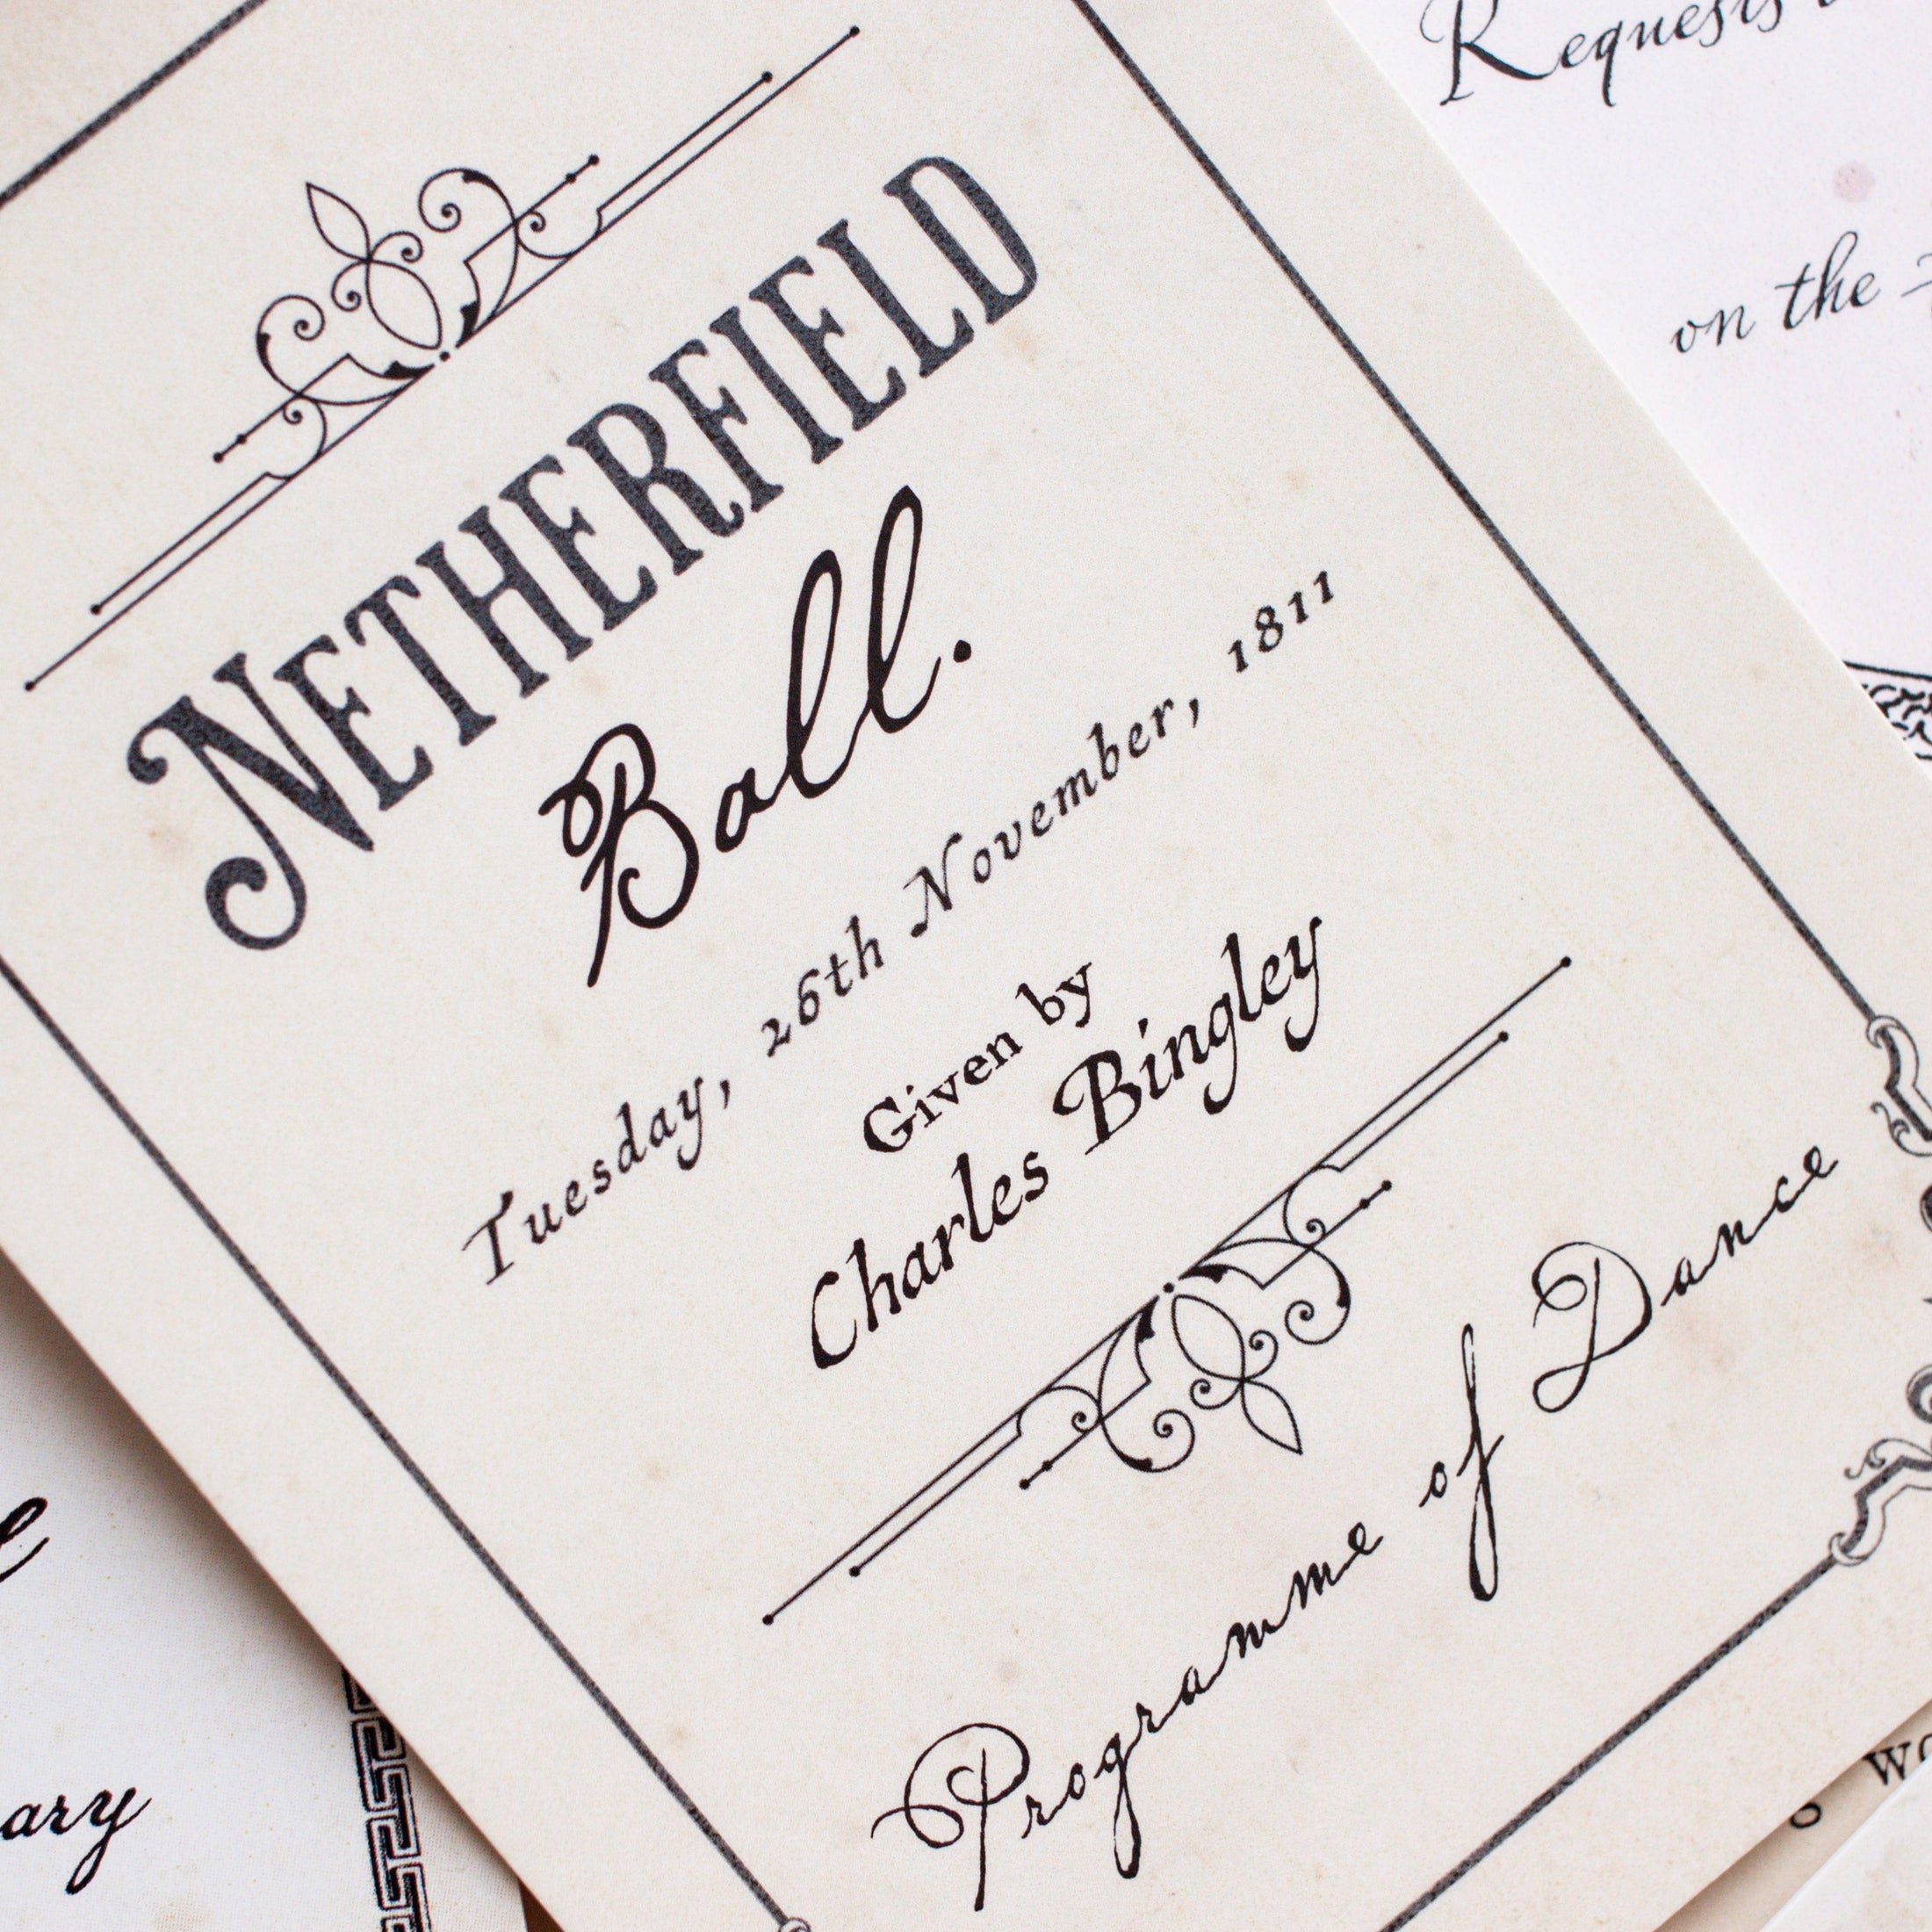 NETHERFIELD
Ball.
Tuesday, 26th November, 1811
Given by
Charles Bingley
Programme of Dance
Requests
on the
ary